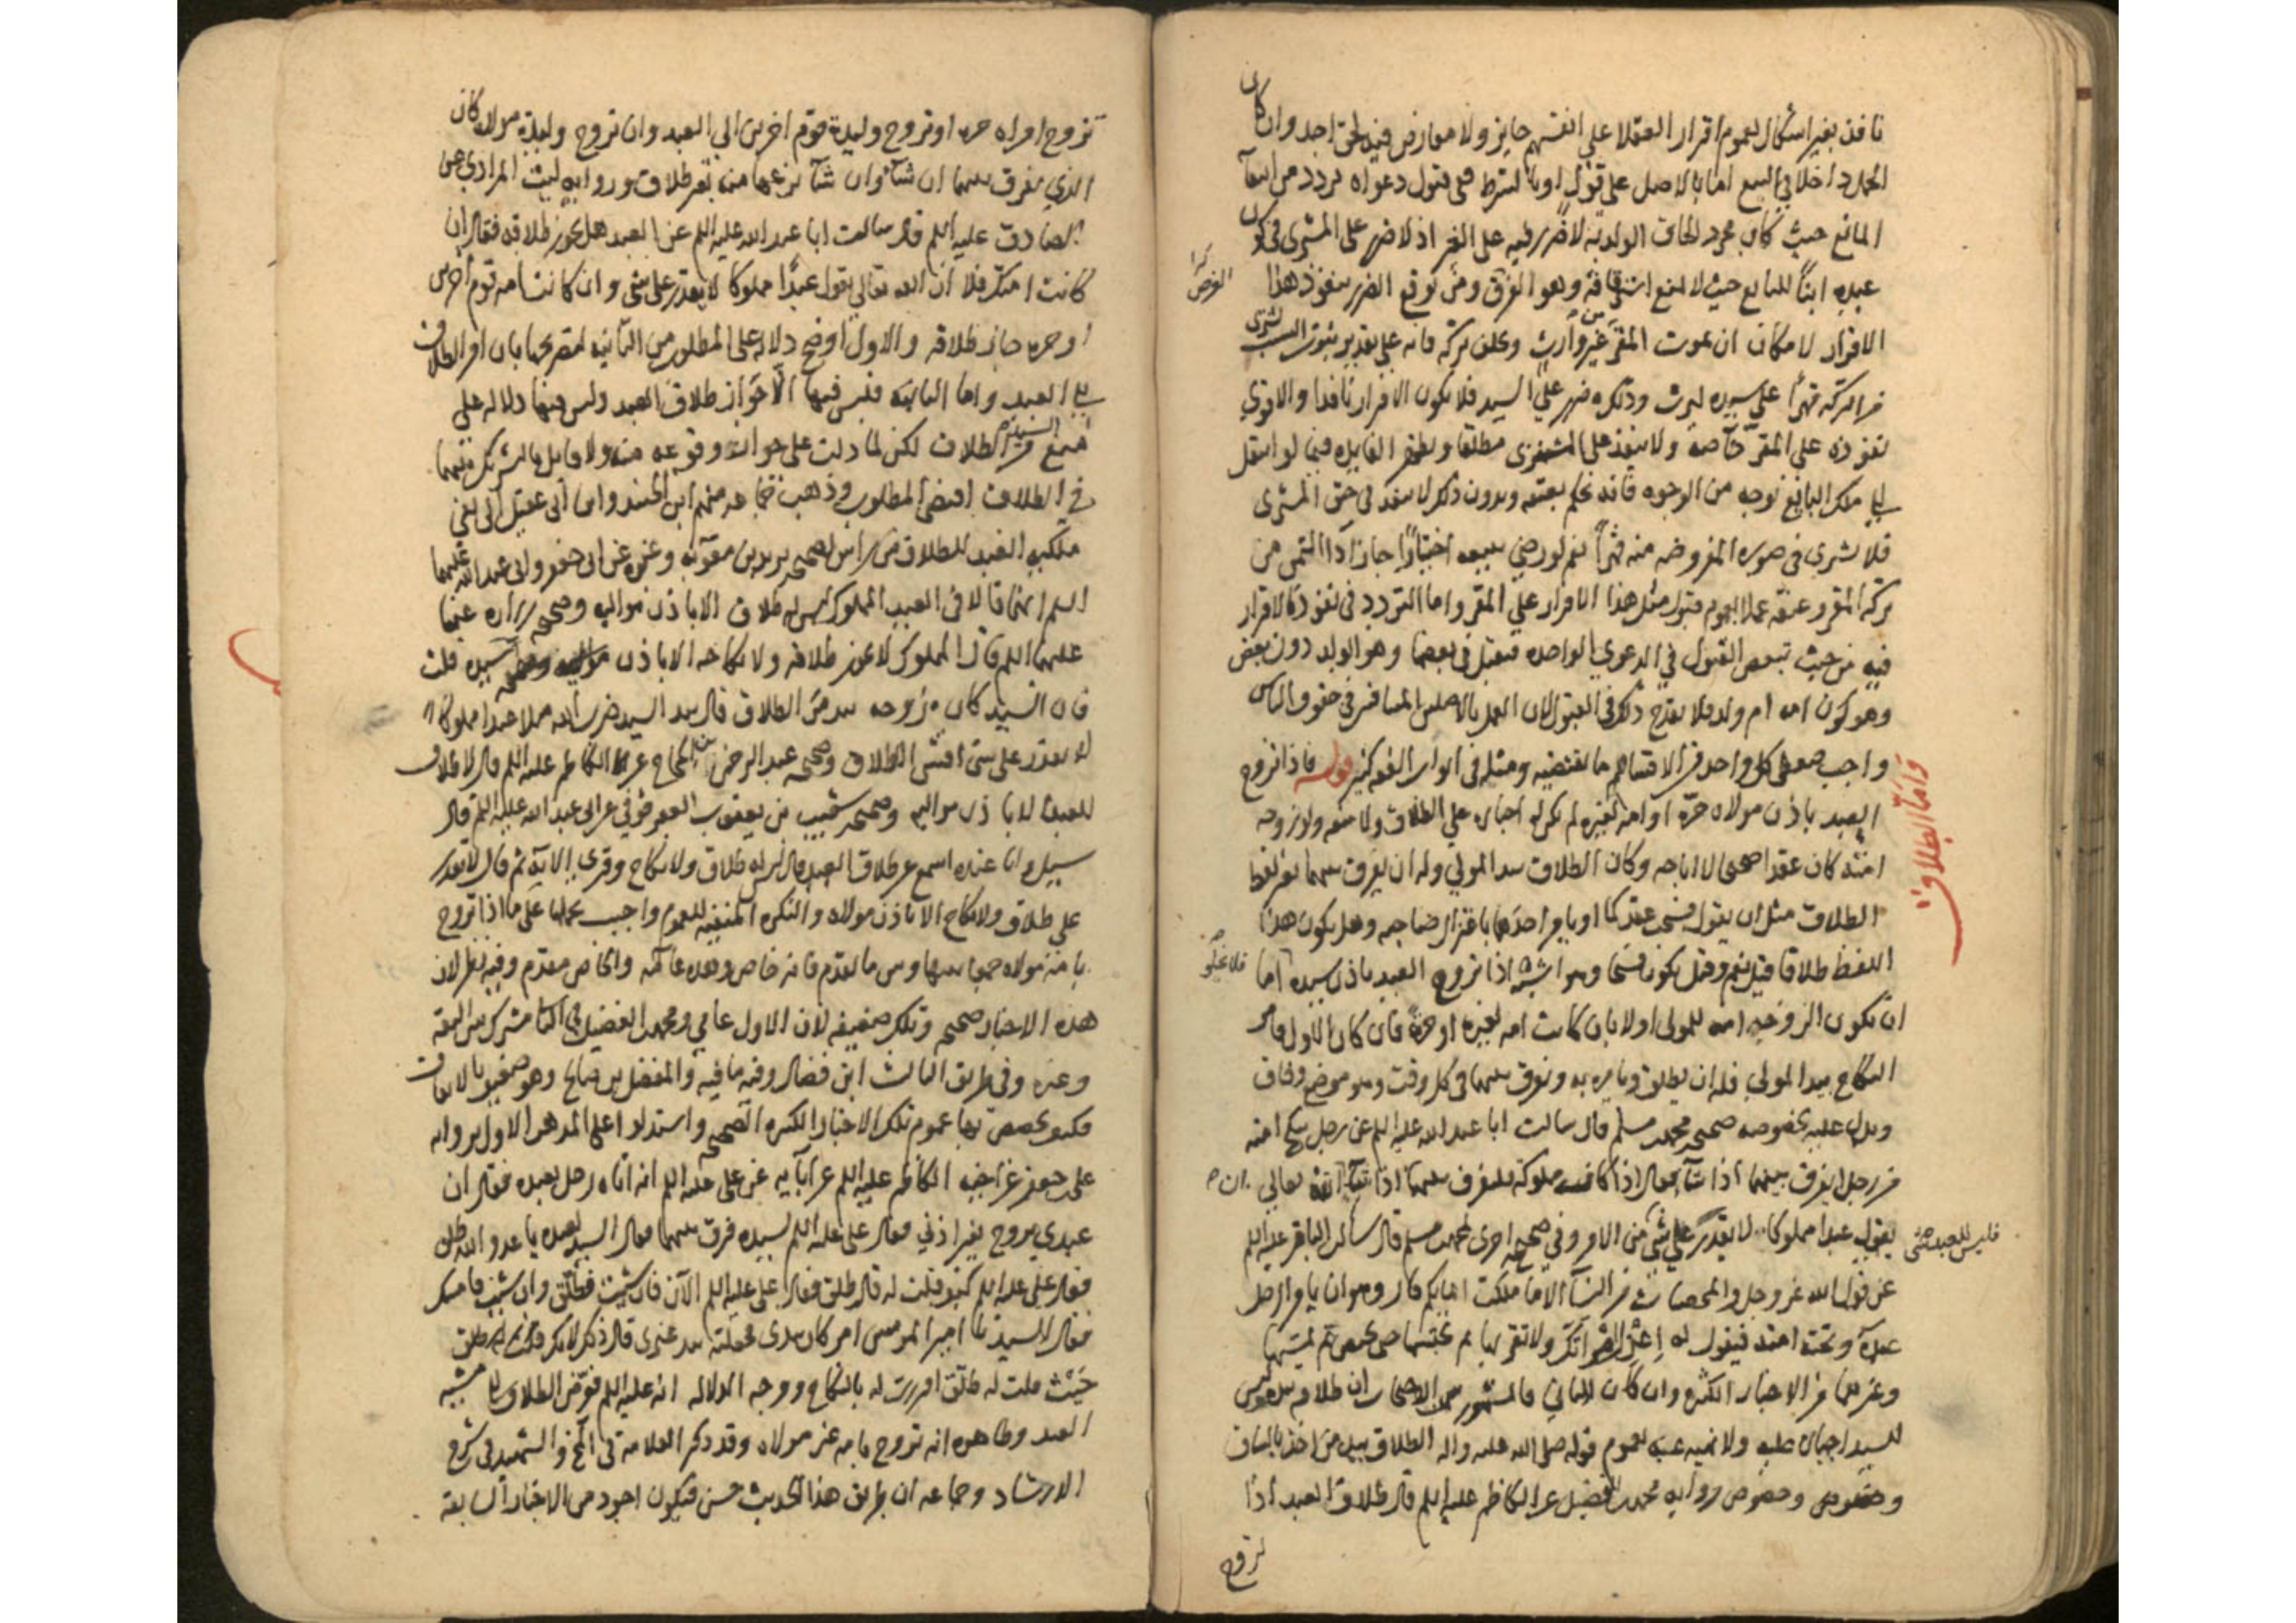 نافذ بغير اشكال لعموم اقرار العقلا على انفسهم جايز ولا معارض فيه لحق احد وان كان
الحمل داخلا في البيع اما بالاصل على قول او بالشرط ففي قبول دعواه تردد من انتفآ
المانع حيث كان مجرد الحاق الولد به لا ضرر فيه على الغير اذ لا ضرر على المشتري في كون
عبده ابنًا للبايع حيث لا يمنع استرقاقه وهو الفرق ومن توقع الضرر بنفوذ هذا
كذا الفرض
الاقرار لامكان ان يموت المقر من غير وارث ويخلف تركة فانه على تقدير ثبوت النسب يشترى
من التركة قهرًا على سيده ليرث وذلك ضرر على السيد فلا يكون الاقرار نافذا والاقوى
نفوذه على المقر خاصة ولا ينفذ على المشتري مطلقا وتظهر الفايدة فيما لو انتقل
الى ملك البايع بوجه من الوجوه فانه يحكم بعتقه وبدون ذلك لا ينفذ في حق المشترى
فلا يشترى في صورة المفروضة منه قهرًا نعم لو رضي ببيعه اختيارًا جاز اداء الثمن من
تركة المقر وعتقه عملا بعموم قبول مثل هذا الاقرار على المقر واما التردد في نفوذ الاقرار
فيه من حيث تبعض القبول في الدعوى الواحدة فتقبل في بعضها وهو الولد دون بعض
وهو كون امه ام ولد فلا يقدح ذلك في القبول لان العمل بالاصلين المتنافيين في حقوق الناس
واجب فيعطى كل واحد من الاقسام ما يقتضيه ومثله في ابواب الفقه كثير قوله فاذا تزوج
وامّا الطلاق
العبد باذن مولاه حرّة او امة لغيره لم يكن له اجباره على الطلاق ولا منعه ولو زوجه
امته كان عقدا صحيحا لا اباحه وكان الطلاق بيد المولى وله ان يفرق بينهما بغير لفظ
الطلاق مثل ان يقول فسخت عقدكما او يأمر احدهما باعتزال صاحبه وهل يكون هذا
اللفظ طلاقا قيل نعم وقيل يكون فسخا وهو اشبه اذا تزوج العبد باذن سيده فلا يخلو اما
ان تكون الزوجه امه للمولى اولا بان كانت امه لغيره او حرة فان كان الاول فامر
النكاح بيد المولى فله ان يطلق ويأمره به ويفرق بينهما في كل وقت وهو موضع وفاق
ويدل عليه بخصوصه صحيحه محمد بن مسلم قال سالت ابا عبد الله عليه السلم عن رجل ينكح امته
من رجل ايفرق بينهما اذا شآ فقال اذا كان مملوكه فليفرق بينهما اذا شآ ان الله تعالى
يقول عبدا مملوكا لا يقدر على شي فليس للعبد شي من الامر وفي صحيحة اخرى لمحمد بن مسلم قال سالت الباقر عليه السلم
عن قول الله عز وجل والمحصنات من النسآ الا ما ملكت ايمانكم قال وهو ان يامر الرجل
عبده وتحته امته فيقول له اعتزل امرأتك ولا تقربها ثم يحبسها حتى تحيض ثم يمسها
وغيرهما من الاخبار الكثيره وان كان الثاني فالمشهور بين الاصحاب ان طلاقه بيده ليس
للسيد اجباره عليه ولا نهيه عنه لعموم قوله صلى الله عليه واله الطلاق بيد من اخذ بالساق
وخصوص رواية محمد بن الفضيل عن الكاظم عليه السلم قال طلاق العبد اذا
تزوج
تزوج امراه حره او تزوج وليدة قوم اخرين الى العبد وان تزوج وليدة مولاه كان
الذي يفرق بينهما ان شآ وان شآ نزعها منه بغير طلاق ورواية ليث المرادي عن
الصادق عليه السلم قال سالت ابا عبد الله عليه السلم عن العبد هل يجوز طلاقه فقال ان
كانت امتك فلا ان الله تعالى يقول عبدًا مملوكا لا يقدر على شي وان كانت امة قوم اخرين
او حره جاز طلاقه والاول اوضح دلاله على المطلوب من الثانية لتصريحها بان امر الطلاق
الى العبد واما الثانية فليس فيها الّا جواز طلاق العبد وليس فيها دلاله على
منع السيد من الطلاق لكن لما دلت على جوازه وقوعه منه ولا قايل بالشركة بينهما
في الطلاق اقتضى المطلوب وذهب جماعه منهم ابن الجنيد وابن ابي عقيل الى نفي
ملكية العبد للطلاق من راس لصحيحه بريد بن معوية وغيره عن ابي جعفر وابي عبد الله عليهما
السلم انهما قالا في العبد المملوك ليس له طلاق الا باذن مواليه وصحيحه زراره عنهما
عليهما السلم قالا المملوك لا يجوز طلاقه ولا نكاحه الا باذن سيده قلت
فان السيد كان زوجه بيد من الطلاق قال بيد السيد ضرب الله مثلا عبدا مملوكا
لا يقدر على شي افشي الطلاق وصحيحه عبد الرحمن بن الحجاج عن الكاظم عليه السلم قال لا طلاق
للعبد الا باذن مواليه وصحيحه شعيب بن يعقوب العقرقوفي عن ابي عبد الله عليه السلم قال
سيل وانا عنده اسمع عن طلاق العبد قال ليس له طلاق ولا نكاح وقرى الآية ثم قال لا يقدر
على طلاق ولا نكاح الا باذن مولاه والنكره المنفية للعموم واجيب بحملها على ما اذا تزوج
بامة مولاه جمعا بينها وبين ما تقدم فانه خاص وهذه عامّه والخاص مقدم وفيه نظر لان
هذه الاخبار صحيحه وتلك ضعيفه لان الاول عامي ومحمد بن الفضيل في الثاني مشترك بين الثقه
وغيره وفي طريق الثالث ابن فضال وفيه ما فيه والمفضل بن صالح وهو ضعيف بالاتفاق
فكيف يخصص بها عموم تلك الاخبار الكثيره الصحيحه واستدلوا على المذهب الاول برواية
على بن جعفر عن اخيه الكاظم عليه السلم عن آبايه عن علي عليه السلم انه اتاه رجل بعبده فقال ان
عبدي تزوج بغير اذني فقال علي عليه السلم لسيده فرق بينهما فقال السيد لعبده يا عدو الله طلق
فقال علي عليه السلم كيف قلت له قال طلق فقال علي عليه السلم الآن فان شيت فطلق وان شيت فامسك
فقال السيد يا امير المومنين امر كان بيدي فجعلته بيد غيري قال ذلك لانك
حيث قلت له طلّق اقررت له بالنكاح ووجه الدلاله انه عليه السلم فوّض الطلاق الى مشيه
العبد وظاهره انه تزوج بامة غير مولاه وقد ذكر العلامة في والشهيد في شرح
الارشاد وجماعه ان طريق هذا الحديث حسن فيكون اجود من الاخبار السابقة